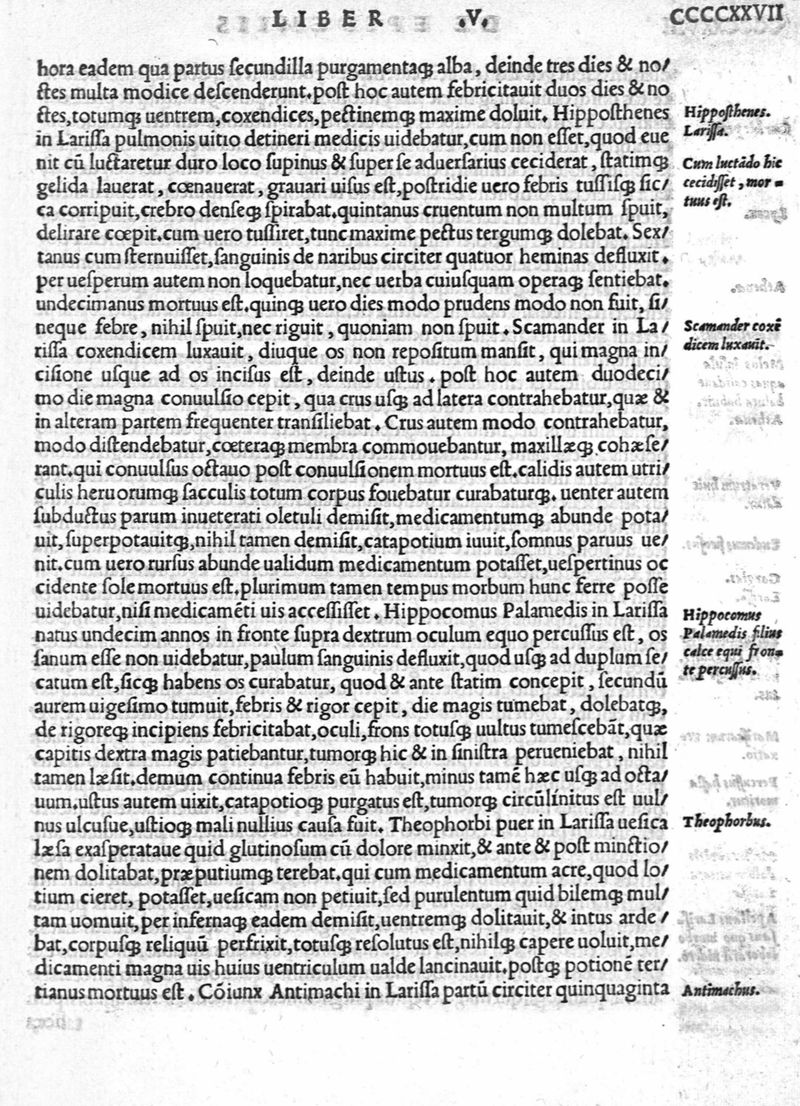 LIBER .V. CCCCXXVII
hora eadem qua partus ſecundilla purgamentaꝗ alba, deinde tres dies & no/
ctes multa modice deſcenderunt. poſt hoc autem febricitauit duos dies & no
ctes, totumꝗ uentrem, coxendices, pectinemꝗ maxime doluit. Hippoſthenes
in Lariſſa pulmonis uitio detineri medicis uidebatur, cum non eſſet, quod eue
nit cū luctaretur duro loco ſupinus & ſuper ſe aduerſarius ceciderat, ſtatimꝗ
gelida lauerat, cœnauerat, grauari uiſus eſt, poſtridie uero febris tuſſiſꝗ ſic/
ca corripuit, crebro denſeꝗ ſpirabat. quintanus cruentum non multum ſpuit,
delirare cœpit. cum uero tuſſiret, tunc maxime pectus tergumꝗ dolebat. Sex/
tanus cum ſternuiſſet, ſanguinis de naribus circiter quatuor heminas defluxit.
per ueſperum autem non loquebatur, nec uerba cuiuſquam operaꝗ ſentiebat.
undecimanus mortuus eſt. quinꝗ uero dies modo prudens modo non fuit, ſi/
neque febre, nihil ſpuit, nec riguit, quoniam non ſpuit. Scamander in La/
riſſa coxendicem luxauit, diuque os non repoſitum manſit, qui magna in/
ciſione uſque ad os inciſus eſt, deinde uſtus. poſt hoc autem duodeci/
mo die magna conuulſio cepit, qua crus uſꝗ ad latera contrahebatur, quæ &
in alteram partem frequenter tranſiliebat. Crus autem modo contrahebatur,
modo diſtendebatur, cœteraꝗ membra commouebantur, maxillæꝗ cohæſe/
rant. qui conuulſus octauo poſt conuulſionem mortuus eſt. calidis autem utri/
culis heruorumꝗ ſacculis totum corpus fouebatur curabaturꝗ. uenter autem
ſubductus parum inueterati oletuli demiſit, medicamentumꝗ abunde pota/
uit, ſuperpotauitꝗ, nihil tamen demiſit, catapotium iuuit, ſomnus paruus ue/
nit. cum uero rurſus abunde ualidum medicamentum potaſſet, ueſpertinus oc
cidente ſole mortuus eſt. plurimum tamen tempus morbum hunc ferre poſſe
uidebatur, niſi medicamēti uis acceſſiſſet. Hippocomus Palamedis in Lariſſa
natus undecim annos in fronte ſupra dextrum oculum equo percuſſus eſt, os
ſanum eſſe non uidebatur, paulum ſanguinis defluxit, quod uſꝗ ad duplum ſe/
catum eſt, ſicꝗ habens os curabatur, quod & ante ſtatim concepit, ſecundū
aurem uigeſimo tumuit, febris & rigor cepit, die magis tumebat, dolebatꝗ,
de rigoreꝗ incipiens febricitabat, oculi, frons totuſꝗ uultus tumeſcebāt, quæ
capitis dextra magis patiebantur, tumorꝗ hic & in ſiniſtra perueniebat, nihil
tamen læſit. demum continua febris eū habuit, minus tamē hæc uſꝗ ad octa/
uum. uſtus autem uixit, catapotioꝗ purgatus eſt, tumorꝗ circūlinitus eſt uul/
nus ulcuſue, uſtioꝗ mali nullius cauſa fuit. Theophorbi puer in Lariſſa ueſica
læſa exaſperataue quid glutinoſum cū dolore minxit, & ante & poſt minctio/
nem dolitabat, præputiumꝗ terebat, qui cum medicamentum acre, quod lo/
tium cieret, potaſſet, ueſicam non petiuit, ſed purulentum quid bilemꝗ mul/
tam uomuit, per infernaꝗ eadem demiſit, uentremꝗ dolitauit, & intus arde/
bat, corpuſꝗ reliquū perfrixit, totuſꝗ reſolutus eſt, nihilꝗ capere uoluit, me/
dicamenti magna uis huius uentriculum ualde lancinauit, poſtꝗ potionē ter/
tianus mortuus eſt. Cōiunx Antimachi in Lariſſa partū circiter quinquaginta
Hippoſthenes.
Lariſſa.
Cum luctādo hic
cecidiſſet, mor=
tuus eſt.
Scamander coxē
dicem luxauit.
Hippocomus
Palamedis filius
calce equi fron=
te percuſſus.
Theophorbus.
Antimachus.